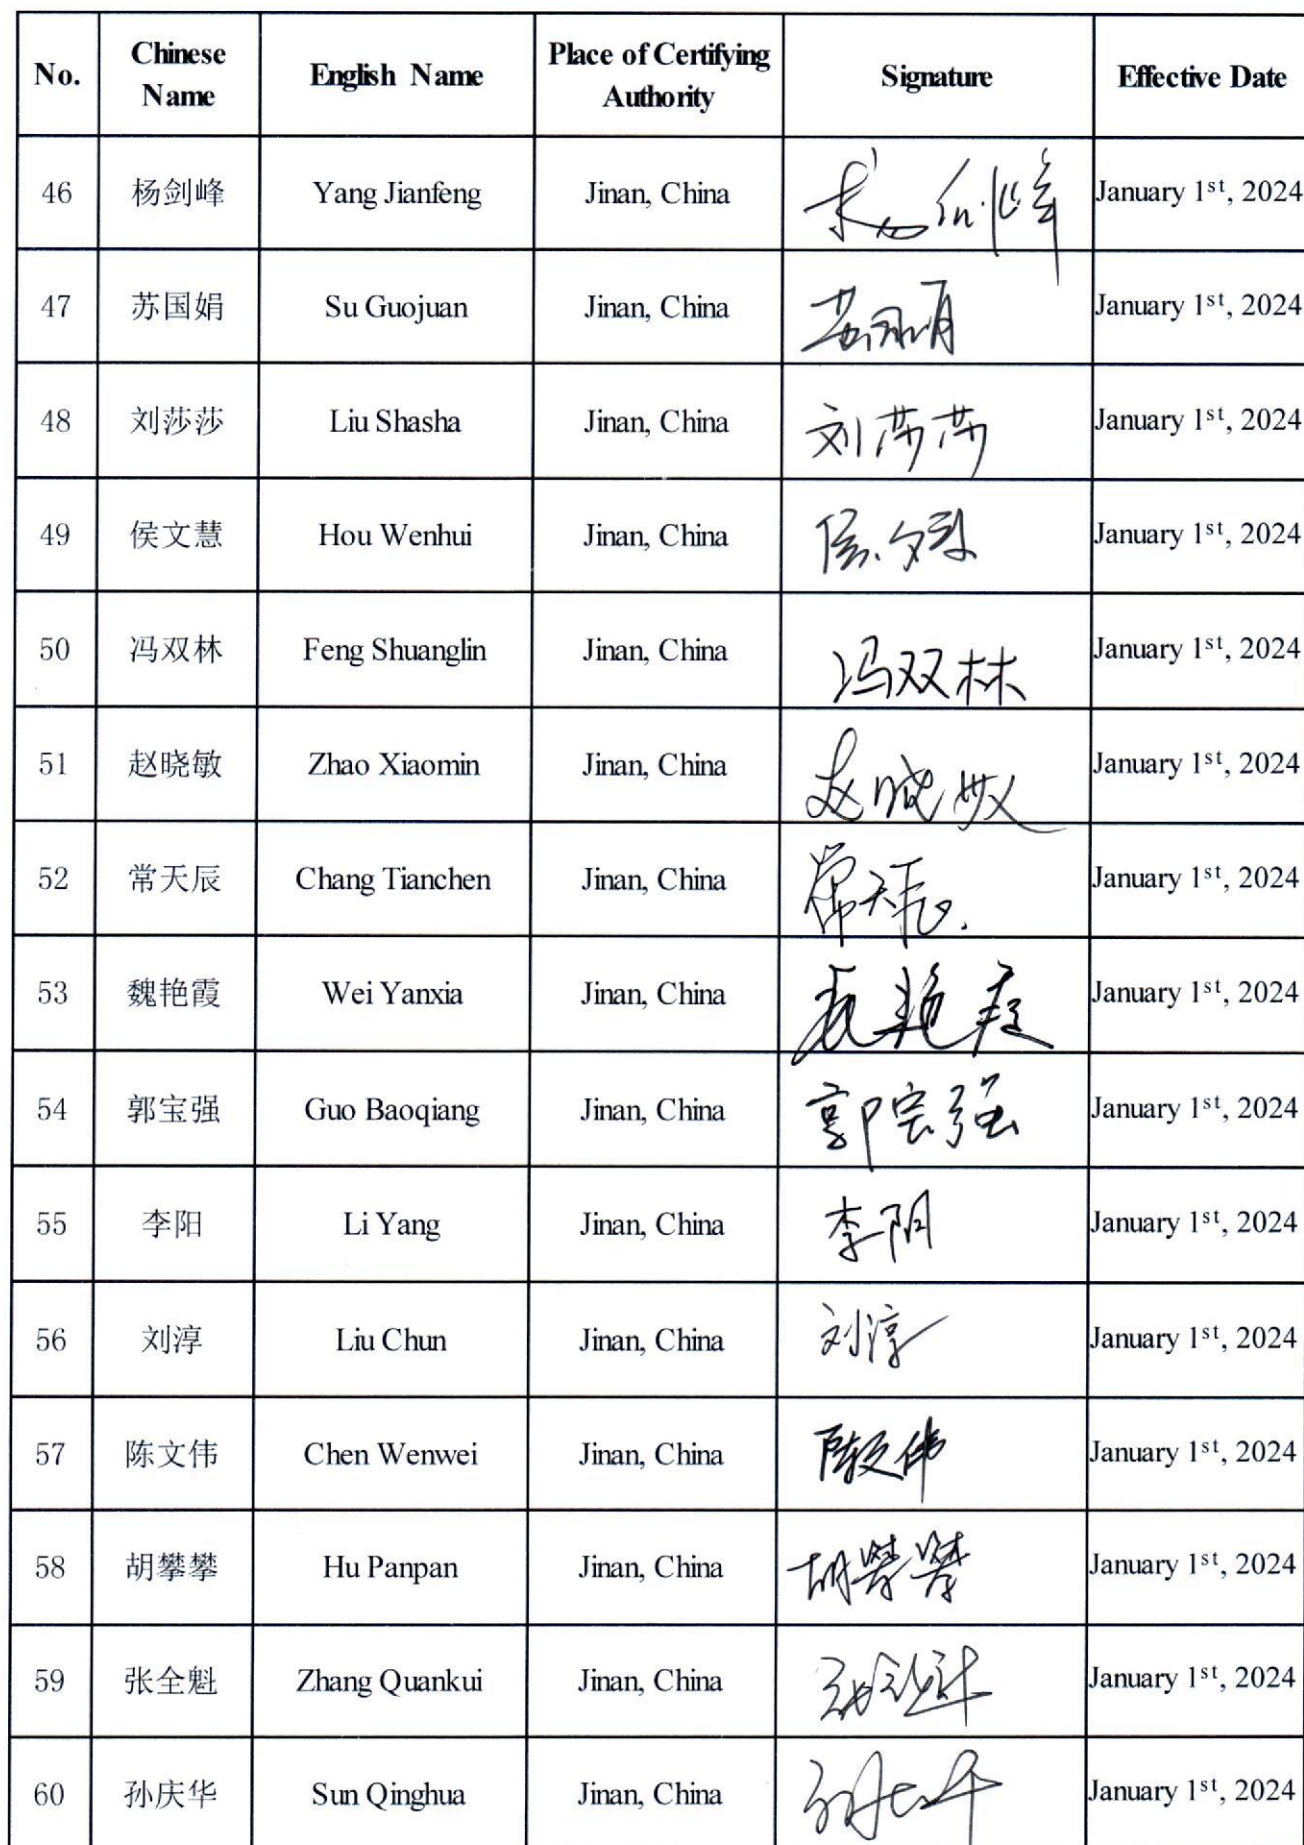 No. Chinese Name English Name Place of Certifying Authority Signature Effective Date
46 杨剑峰 Yang Jianfeng Jinan, China January 1st, 2024
47 苏国娟 Su Guojuan Jinan, China 苏国娟 January 1st, 2024
48 刘莎莎 Liu Shasha Jinan, China 刘莎莎 January 1st, 2024
49 侯文慧 Hou Wenhui Jinan, China January 1st, 2024
50 冯双林 Feng Shuanglin Jinan, China 冯双林 January 1st, 2024
51 赵晓敏 Zhao Xiaomin Jinan, China 赵晓敏 January 1st, 2024
52 常天辰 Chang Tianchen Jinan, China 常天辰 January 1st, 2024
53 魏艳霞 Wei Yanxia Jinan, China January 1st, 2024
54 郭宝强 Guo Baoqiang Jinan, China 郭宝强 January 1st, 2024
55 李阳 Li Yang Jinan, China 李阳 January 1st, 2024
56 刘淳 Liu Chun Jinan, China 刘淳 January 1st, 2024
57 陈文伟 Chen Wenwei Jinan, China 陈文伟 January 1st, 2024
58 胡攀攀 Hu Panpan Jinan, China 胡攀攀 January 1st, 2024
59 张全魁 Zhang Quankui Jinan, China January 1st, 2024
60 孙庆华 Sun Qinghua Jinan, China January 1st, 2024